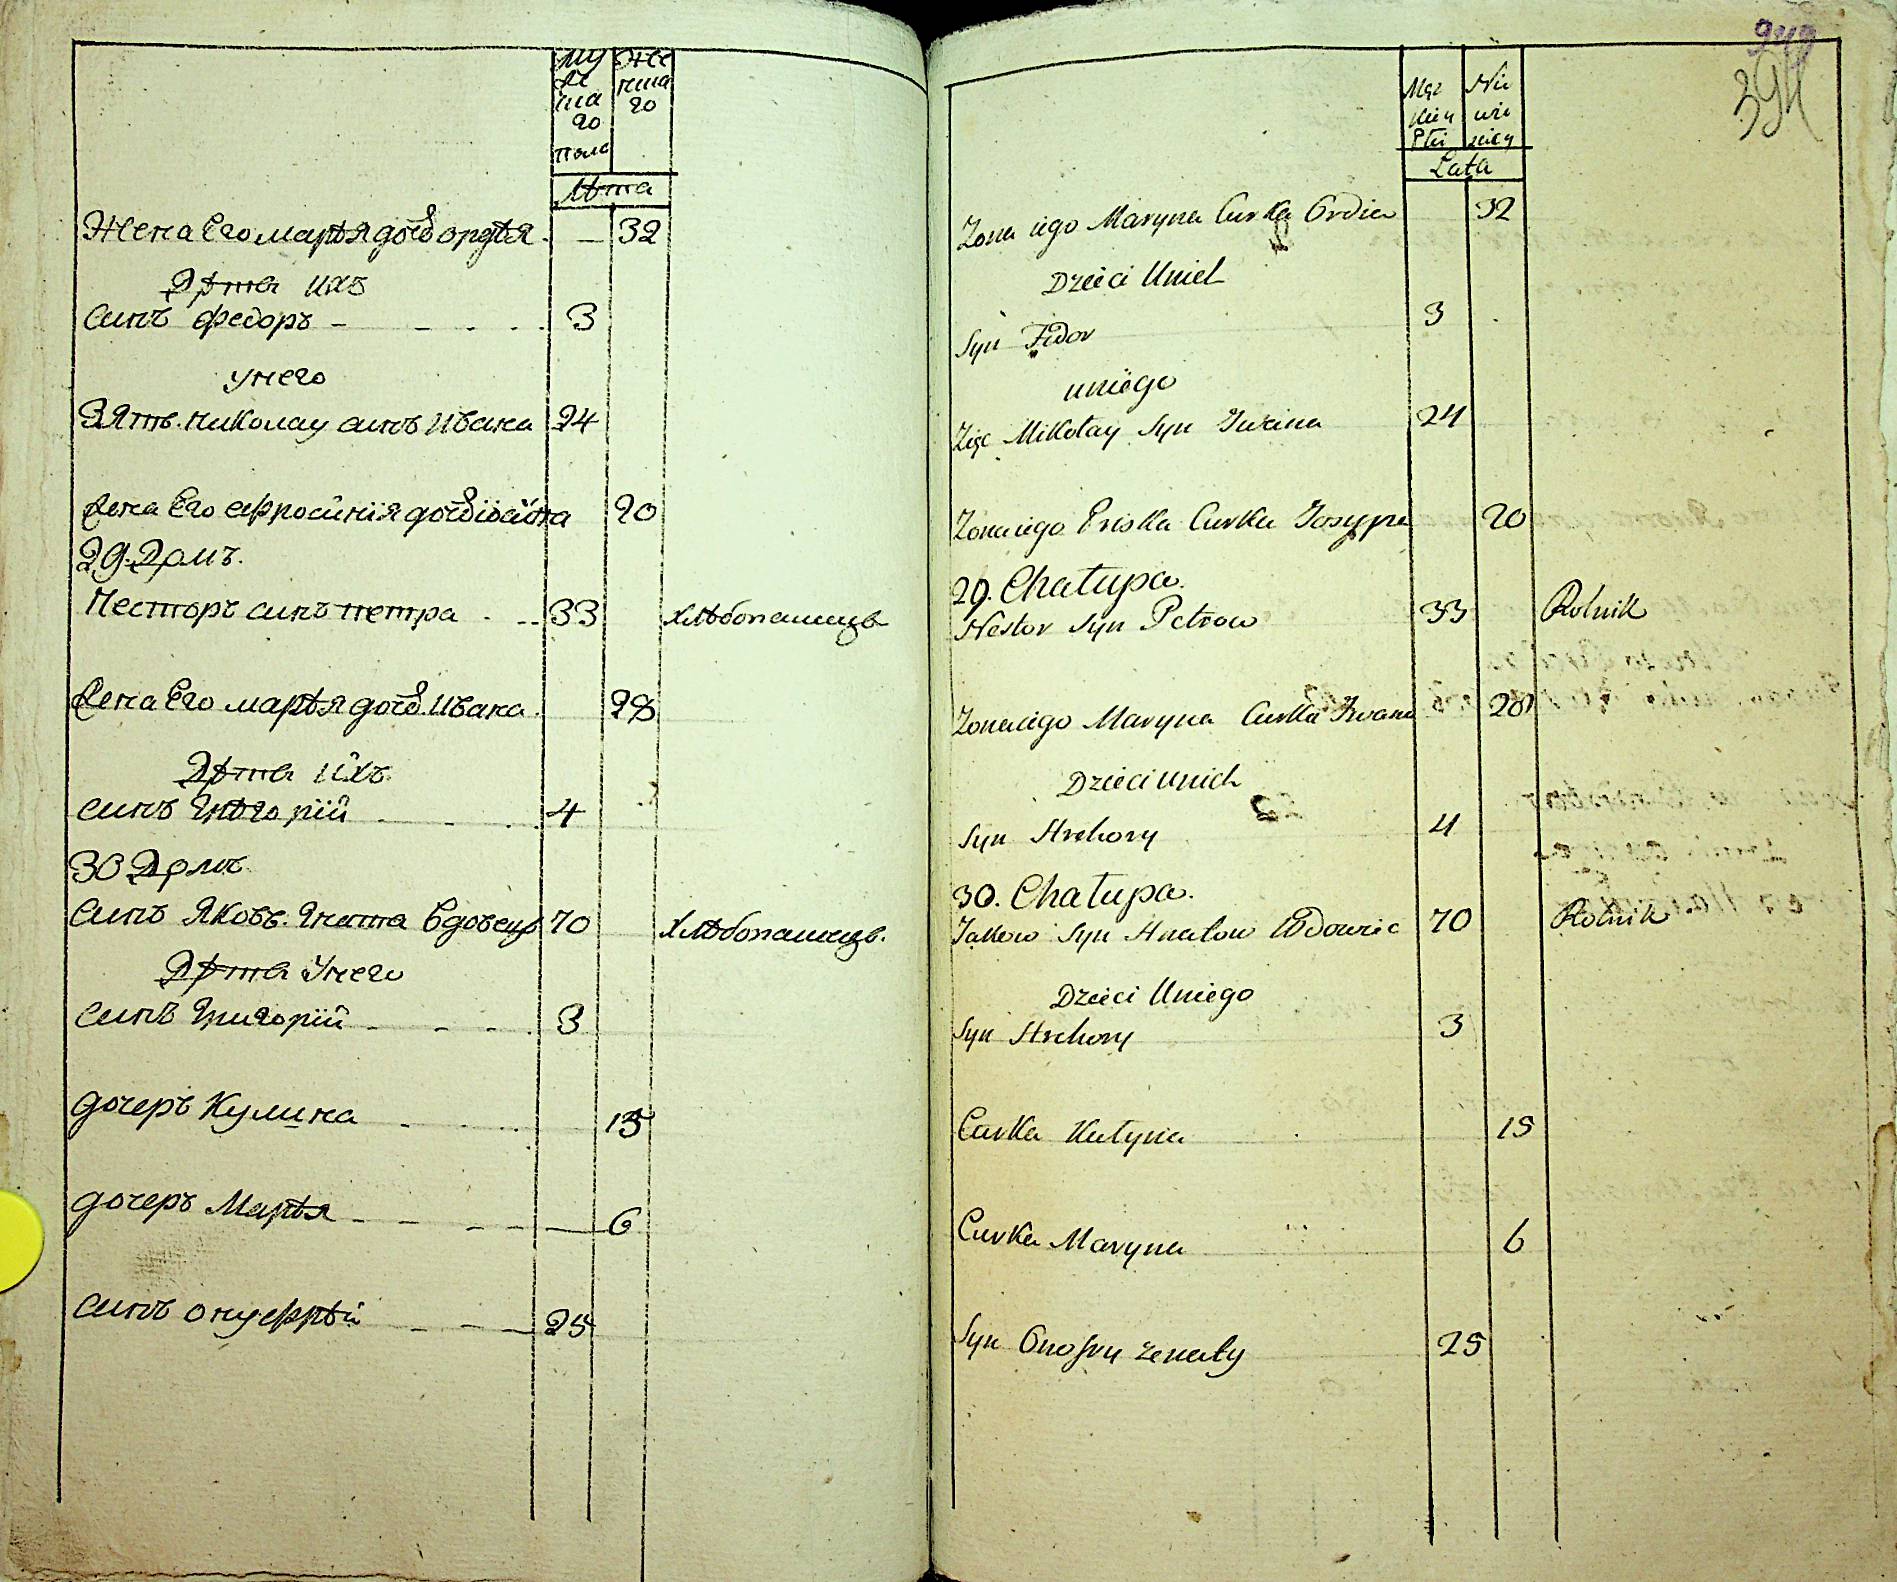 му же Же
ска нска
го го
полѣ
Лѣта
Жена Его марѣя дочь ордѣя — 32
Дѣти ихъ
синъ федоръ 3
унего
Зять николау синъ ивана 24
Жена Его ефросинія дочь іосипа 20
29 Домъ.
Несторъ синъ петра 33 хлѣбопашецъ
Жена Его марѣя дочь ивана 28
Дѣти ихъ
синъ Григорій 4
30 Домъ
синъ Яковъ Гната вдовецъ 70 хлѣбопашецъ.
Дѣти Унего
синъ Григорій 3
дочеръ Кулина 15
дочеръ Марѣя 6
синъ онуфрѣй 25
949
394
Męz Nie
kiey wie
Płci sciey
Lata
Zona iego Maryna Curka Ordia 32
Dzieci Unich
Syn Fidor 3
uniego
Zięc Mikołay Syn Iwana 24
Zona iego Priska Curka Josypa 20
29. Chałupa.
Nestor Syn Petrow 33 Rolnik
Zona iego Maryna Curka Iwana 28
Dzieci unich
Syn Hrehory 4
30. Chałupa.
Jakow Syn Hnatow Wdowiec 70 Rolnik
Dzieci Uniego
Syn Hrehory 3
Curka Kulyna 15
Curka Maryna 6
Syn Onofry zenaty 25